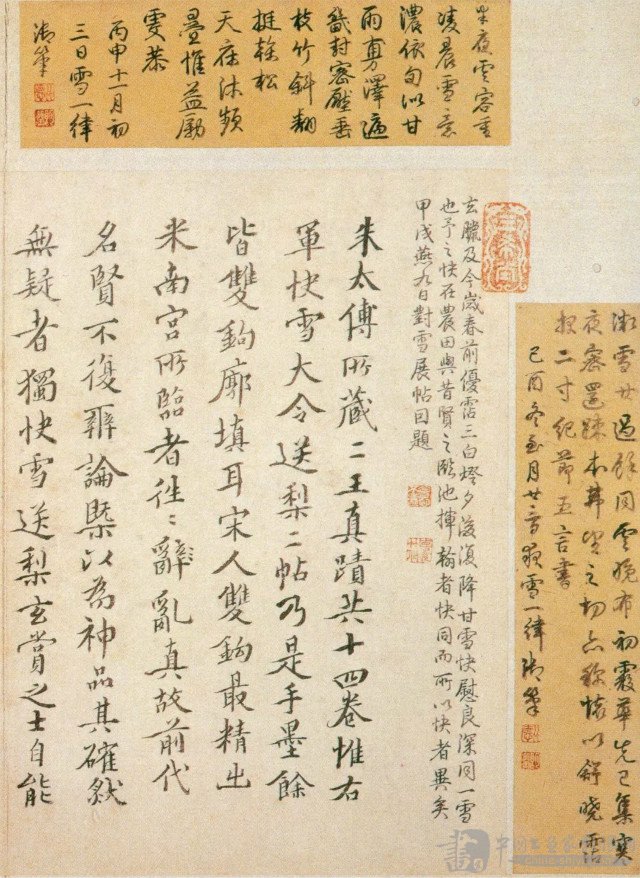 半夜雲容重
凌晨雪意
濃依旬似甘
雨澤
封密壓垂
枝竹斜翻
挺榦松
天庥沐頻
疊惟益勵
虔恭
丙申十一月初
三日雪一律
御筆
雪廿過餘同雲晚布初霰華先已集寒
夜密還疎望之切懷以舒曉霑
報二寸紀節五言書
己酉冬至月廿夜雪一律御筆
玄臘及今歲春前優霑三白燈夕後復降甘雪快慰良深同一雪
也予之快在農田與昔賢之臨池揮翰者快同而所以快者異矣
甲戌燕九日對雪展帖因題
朱太傅所藏二王真蹟共十四卷惟右
軍快雪大令送梨二帖乃是手墨餘
皆雙鉤廓填耳宋人雙鉤最精出
米南宮所臨者往〻辭亂真故前代
名賢不復辨論槩以為神品其確然
無疑者獨快雪送梨玄賞之士自能